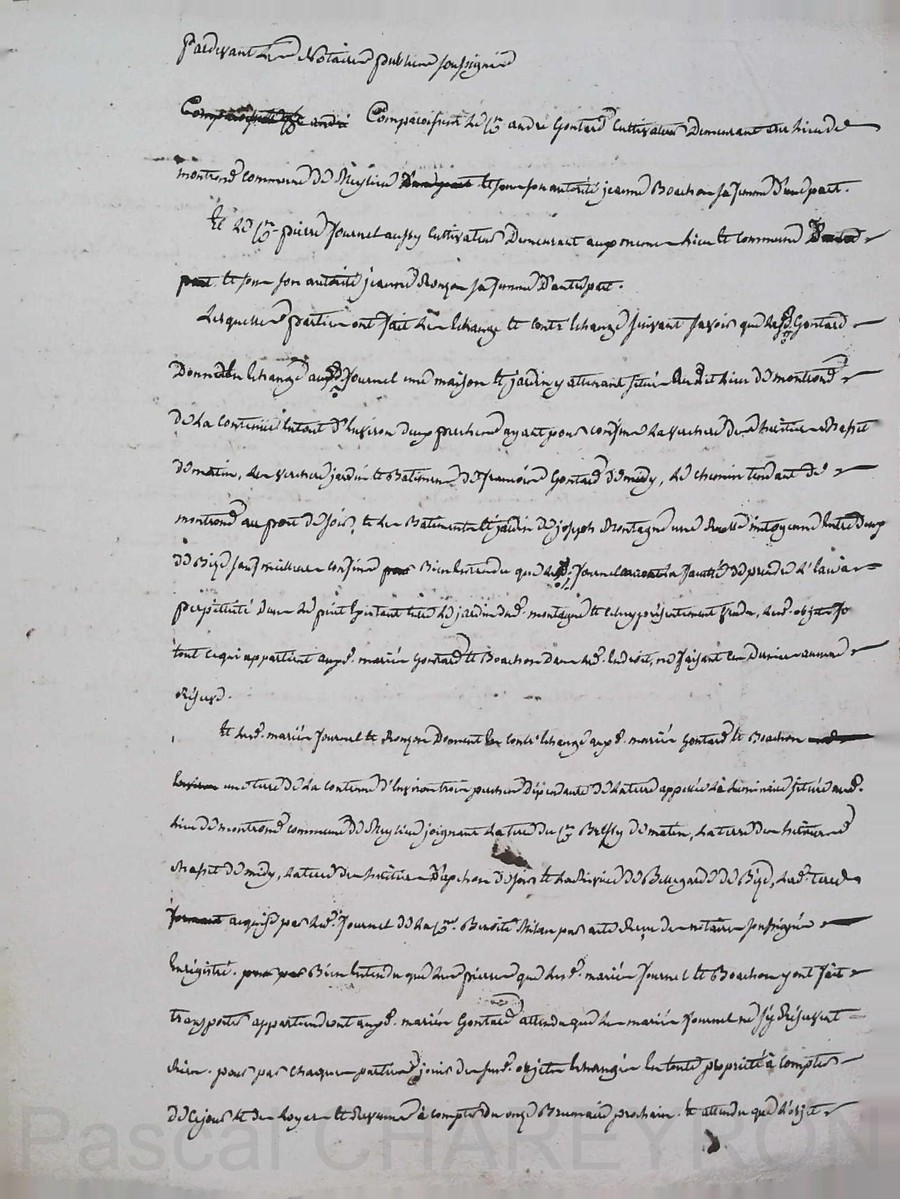 Pardevant les Notaires publics soussignés
Comparoissent le Cn andré Gontard Cultivateur Demeurant au lieu de
montrond commune de Meylieu et sous son autorité jeanne Boachon sa femme D'une part.
Et le Cn pierre Journel aussy Cultivateur Demeurant aux memes lieu et commune
et sous son autorité jeanne Ronzon sa femme D'autre part.
Lesquelles parties ont fait les Echange et contr'Echange suivant savoir que led. Gontard
Donne en Echange aud. Journel une maison et jardin y attenant situés audit lieu de montrond
de la contenue en tout d'Environ deux perches ayant pour confins la verchere des héritiers Chassit
de matin, les verchere jardin et Batiment de François Gontard de midy, le chemin tendant de
montrond au port de soir, et les Batiments et jardin de joseph montagne une Ruelle mitoyenne Entre Deux
de Bize sauf meilleurs confins Bien Entendu que led. Journel la faculté de prendre de l'Eau a
perpétuité Dans le puit Existant Entre le jardin dud. montagne et celuy présentement Vendu, lesd. objets
tout ce qui appartient auxd. mariés Gontard et Boachon Dans led. Endroit, ne faisant aucune
Réserve.
Et lesd. mariés Journel et Ronzon Donnent en contr'échange auxd. mariés Gontard et Boachon
une terre de la contenue d'Environ trois perches Dépendante de la terre appellée située aud.
lieu de montrond commune de Meylieu joignant la terre du Cn de matin, la terre des héritiers
Chassit de midy, la terre des héritiers D'apchon de soir et la Riviere de Bellegarde de Bize, lad. terre
acquise par led. Journel de la Cne Benoite Milan par acte Reçu des notaires soussignés
Enregistré. Bien Entendu que les pierres que lesd. mariés Journel et Boachon y ont fait
transporter appartiendront auxd. mariés Gontard attendu que les mariés Journel ne s'y Réservent
Rien. pour par chaque partie jouir des susd. objets Echangés En toute propriété à compter
de ce jour et des loyers et Revenus à compter du onze Brumaire prochain. Et attendu que l'objet
Pascal CHAREYRON